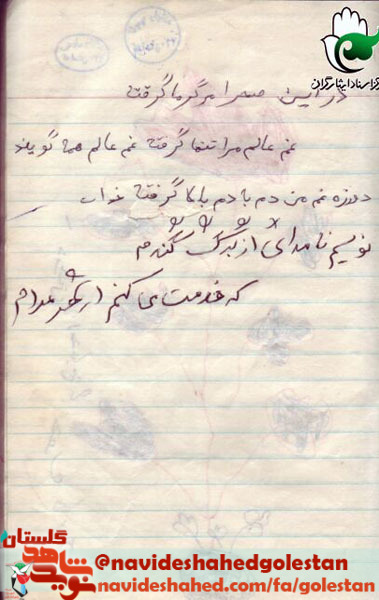 مرکز اسناد ایثارگران
در این صحرا مرگرما گرفته
غم عالم مرا تنها گرفته غم عالم همه گویند
دوروزه غم من دم با دم بالا گرفته
نویسم نامه‌ای از برگ گندم
که خدمت می کنم از شهر مردم
گلستان
نوید شاهد
@navideshahedgolestan
navideshahed.com/fa/golestan